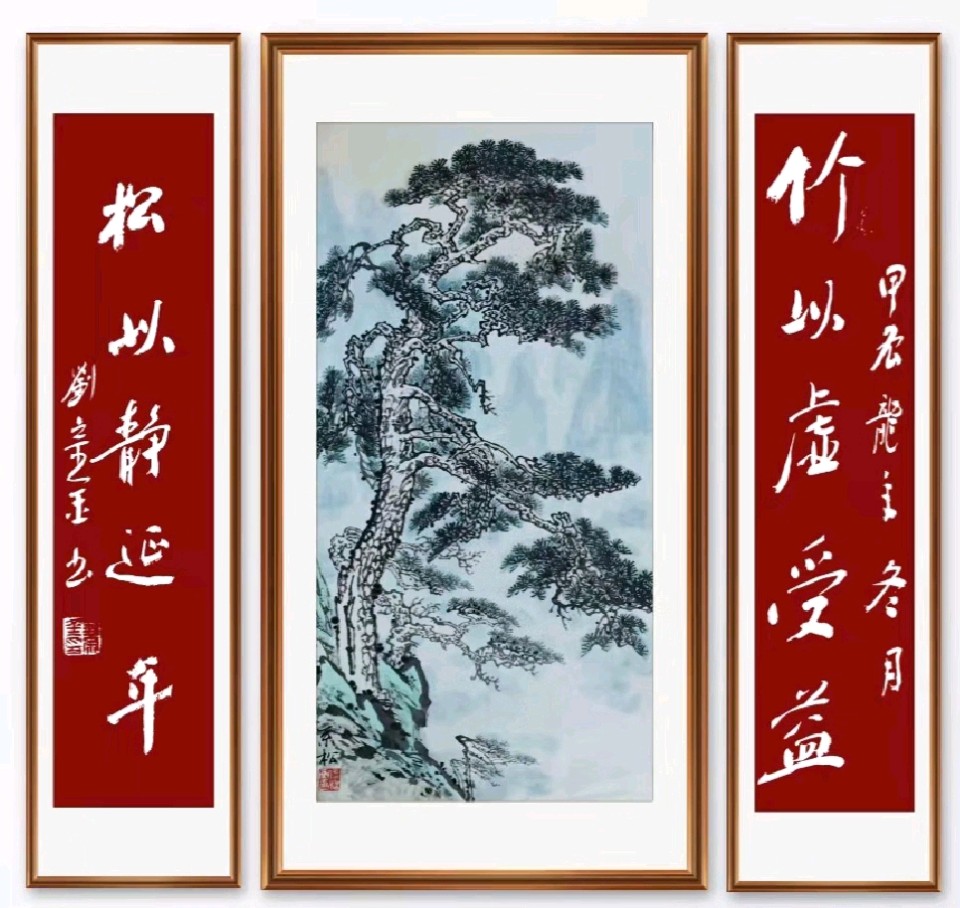 竹以虚受益
甲辰龍年冬月
松以静延年
劉
玉书
松